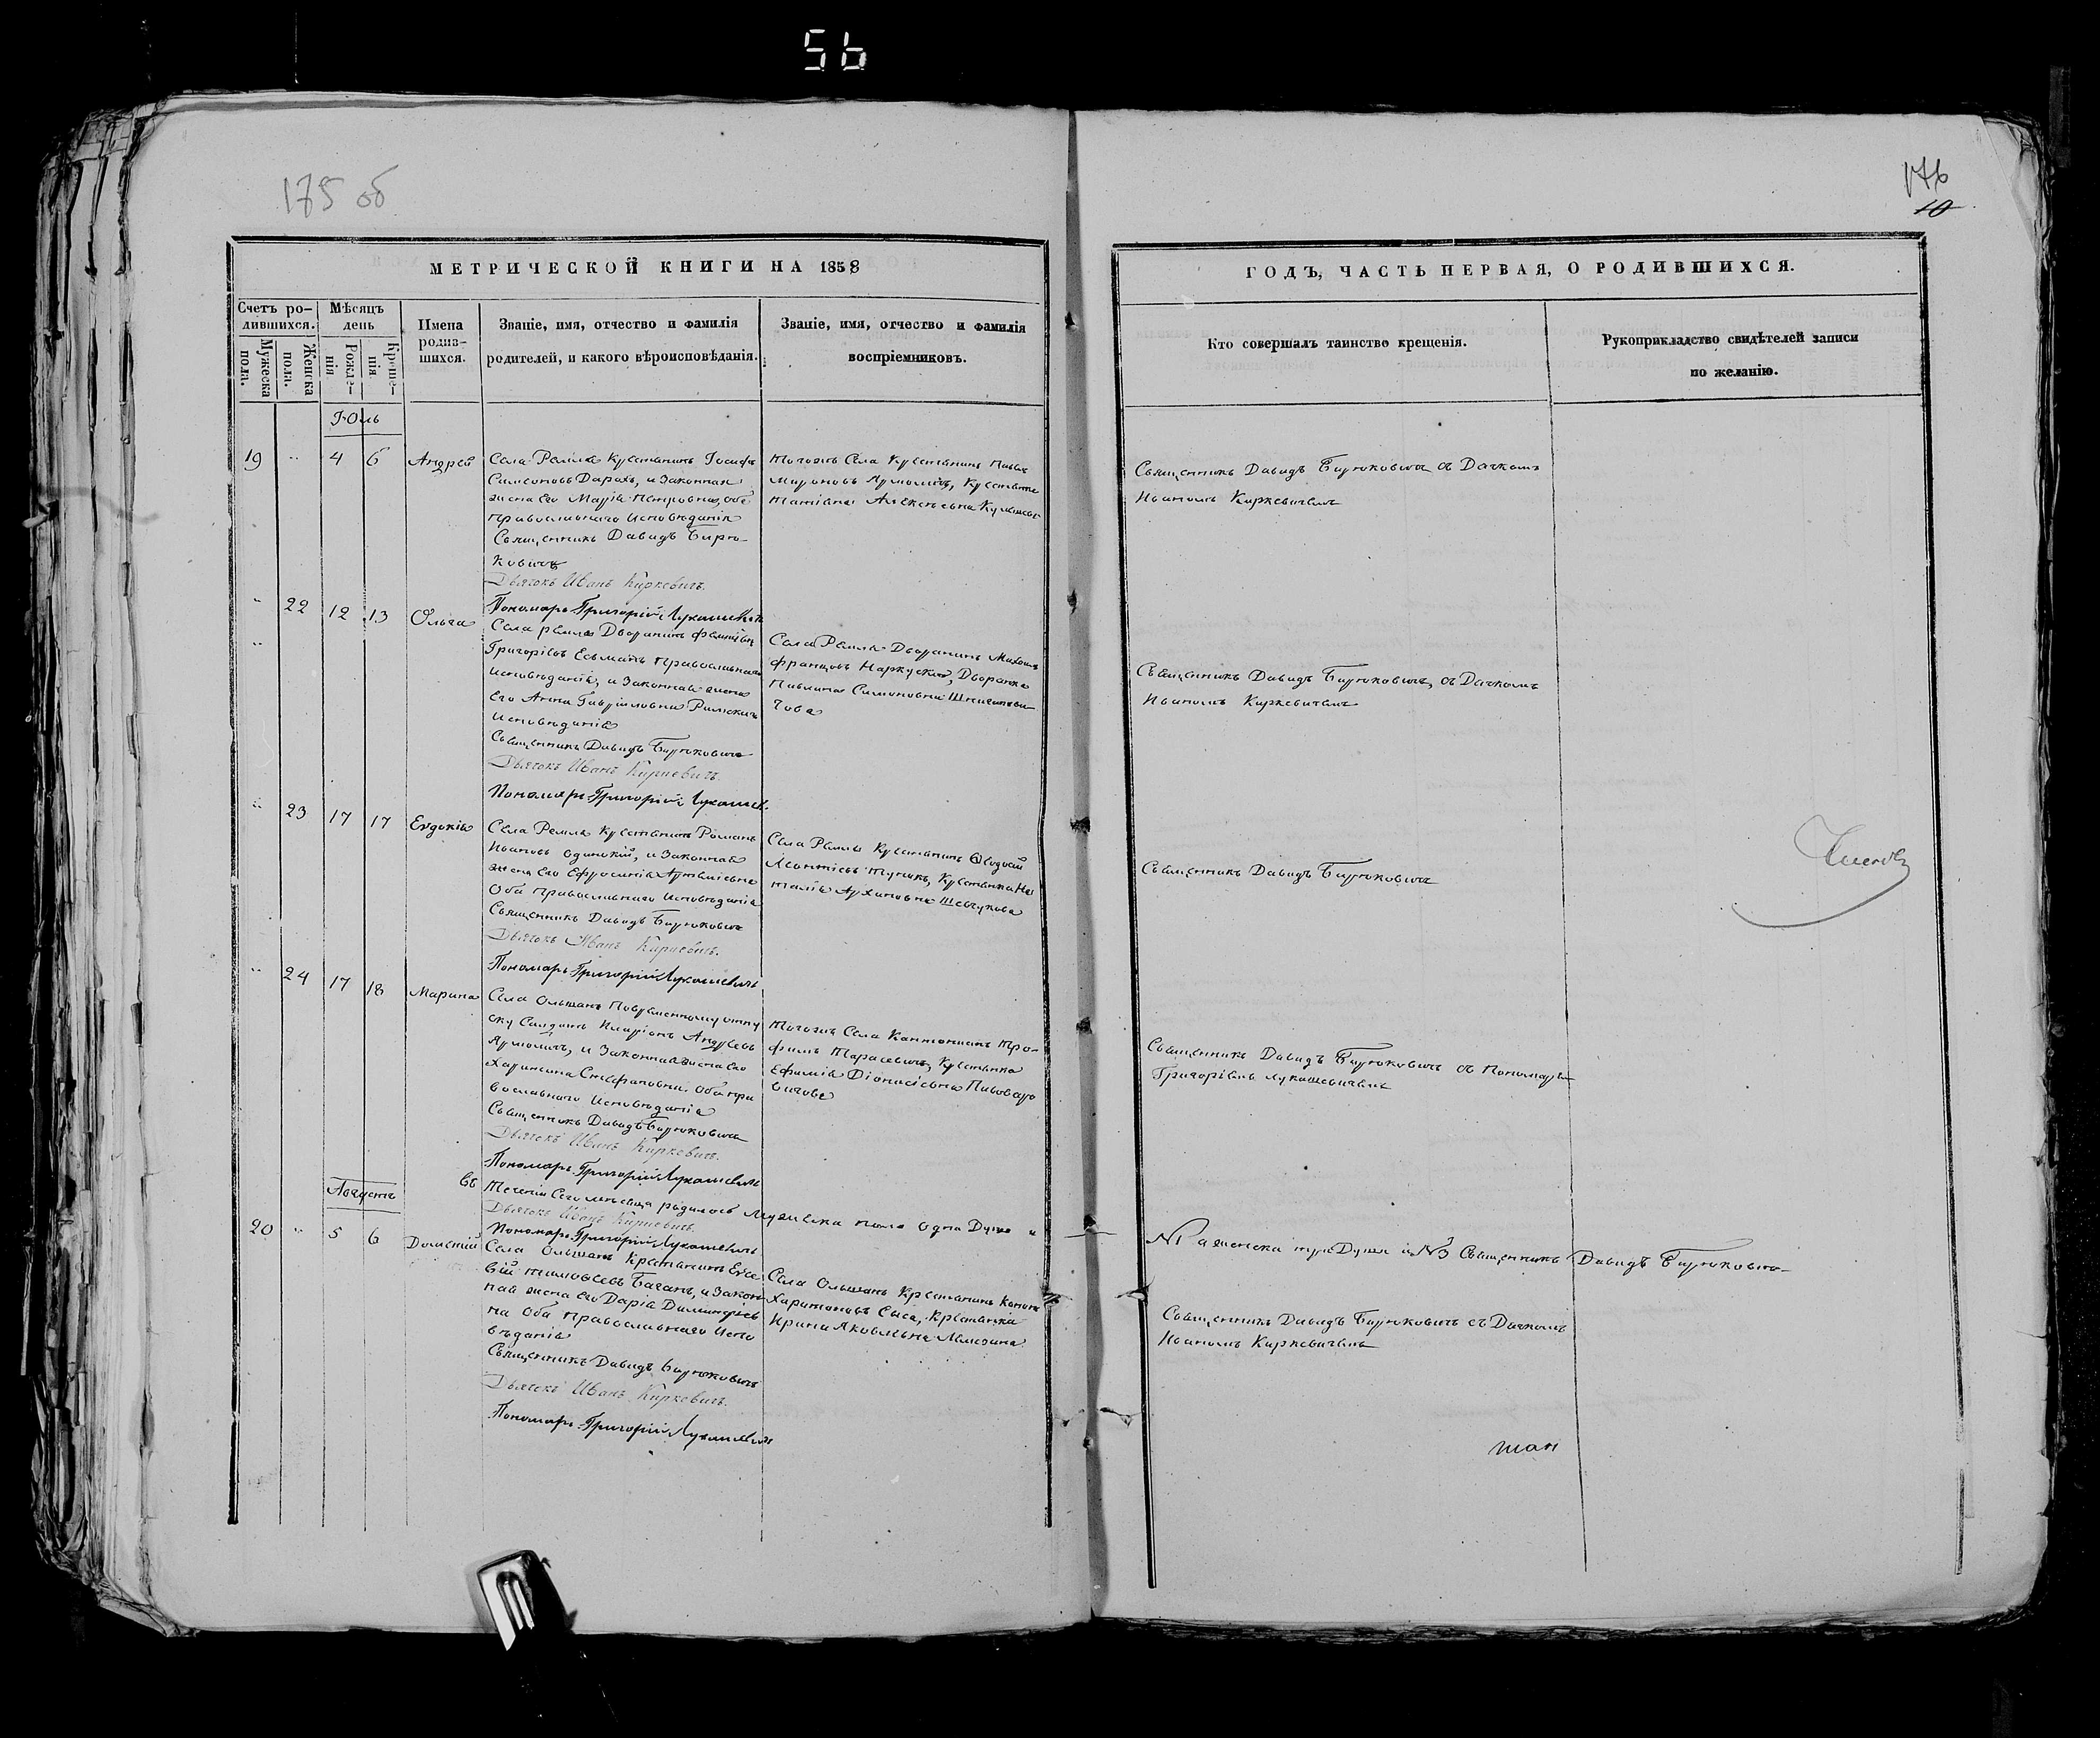 56
175 об
176
10
МЕТРИЧЕСКОЙ КНИГИ НА 1858
ГОДЪ, ЧАСТЬ ПЕРВАЯ, О РОДИВШИХСЯ.
Счетъ ро-
дившихся.
Мужеска
пола.
Женска
пола.
Мѣсяцъ
день
Рожде-
нія
Креще-
нія
Имена
родив-
шихся.
Званіе, имя, отчество и фамилія
родителей, и какого вѣроисповѣданія.
Званіе, имя, отчество и фамилія
воспріемниковъ.
Кто совершалъ таинство крещенія.
Рукоприкладство свидѣтелей записи
по желанію.
Іюль
19 " 4 6 Андрей
Села Ремля Крестьянинъ Іосифъ
Самсоновъ Дарахъ, и Законная
жена его Марія Петровна, обѣ
православнаго исповѣданія
Священникъ Давидъ Бирю-
ковичъ
Дьячокъ Иванъ Киркевичъ.
Пономарь Григорій Лукашевичъ
Тогожъ Села Крестьянинъ
Мироновъ Ярмоличъ, Крестьянка
Татіана Алексѣевна
Священникъ Давидъ Бирюковичъ съ Дьячкомъ
Иваномъ Киркевичемъ
" 22 12 13 Ольга
Села Ремля Дворянинъ
Григоріевъ Есьманъ Православнаго
исповѣданія, и Законная жена
Его Анна Гавриловна Римскаго
исповѣданія
Священникъ Давидъ Бирюковичъ
Дьячокъ Иванъ Киркевичъ.
Пономарь Григорій Лукашев.
Села Ремля Дворянинъ Михаилъ
Францовъ Наркускій, Дворянка
Павлина Симоновна
Священникъ Давидъ Бирюковичъ, съ Дьячкомъ
Иваномъ Киркевичемъ
" 23 17 17 Евдокія
Села Ремля Крестьянинъ Романъ
Ивановъ Одинокій, и Законная
жена его Ефросинія
Оба православнаго исповѣданія
Священникъ Давидъ Бирюковичъ
Дьячокъ Иванъ Киркевичъ.
Пономарь Григорій Лукашевичъ
Села Ремля Крестьянинъ Ѳеодосій
Леонтіевъ Тупикъ, Крестьянка На
талія Архиповна Шевчукова
Священникъ Давидъ Бирюковичъ
" 24 17 18 Марина
Села Ольшанъ Повременному отпу
ску Солдатъ Иларіонъ Андреевъ
Ярмоличъ, и Законная жена его
Харитина Стефановна. Оба пра
вославнаго исповѣданія
Священникъ Давидъ Бирюковичъ
Дьячокъ Иванъ Киркевичъ.
Пономарь Григорій Лукашевичъ
Тогожъ Села Кантонистъ Тро-
фимъ Тарасевичъ, Крестьянка
Ефимія Діонисіевна Пивовар
Священникъ Давидъ Бирюковичъ съ Пономаремъ
Григоріемъ Лукашевичемъ
Августъ
Въ теченіи Сего мѣсяца родилось Мужеска пола одна Душа и
№1 а женска три Души и №3 Священникъ Давидъ Бирюковичъ
Дьячокъ Иванъ Киркевичъ.
Пономарь Григорій Лукашевичъ
20 " 5 6 Дометій
Села Ольшанъ Крестьянинъ Евсе
вій Тимоѳеевъ Баганъ, и Закон
ная жена его Дарія Димитріев
на Оба православнаго испо
вѣданія
Священникъ Давидъ Бирюковичъ
Дьячокъ Иванъ Киркевичъ.
Пономарь Григорій Лукашевичъ
Села Ольшанъ Крестьянинъ
Харитоновъ Сыса, Крестьянка
Ирина Яковлевна
Священникъ Давидъ Бирюковичъ съ Дьячкомъ
Иваномъ Киркевичемъ